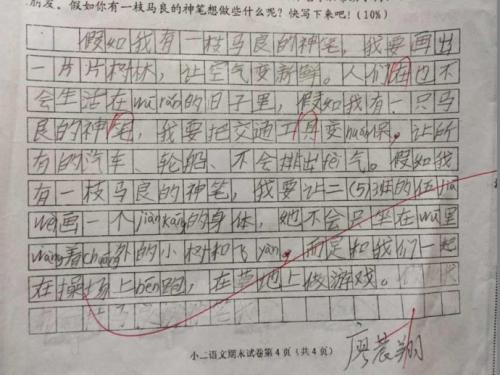 朋友。假如你有一枝马良的神笔想做些什么呢？快写下来吧！(10%)
假如我有一枝马良的神笔，我要画出
一片片树林，让空气变新鲜。人们再也不
会生活在wū rǎn的日子里，假如我有一只马
良的神笔，我要把交通工具变huán保，让所
有的汽车、轮船、不会排出废气。假如我
有一枝马良的神笔，我要让二(5)班的伍jiā
wěi画一个jiànkāng的身体，她不会只坐在wū里
wàng着chuāng外的小树和飞yàn。而是和我们一起
在操场上bēn跑，在草地上做游戏。
小二语文期末试卷第4页（共4页）
廖晨翔